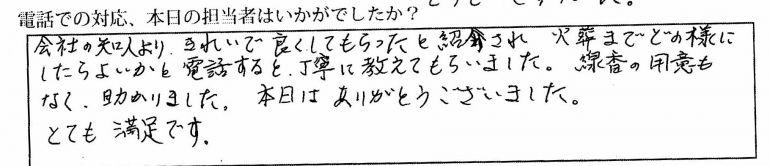 電話での対応、本日の担当者はいかがでしたか？
会社の知人より、きれいで良くしてもらったと紹介され 火葬までどの様に
したらよいかと電話すると、丁寧に教えてもらいました。 線香の用意も
なく、助かりました。 本日は ありがとうございました。
とても 満足です。